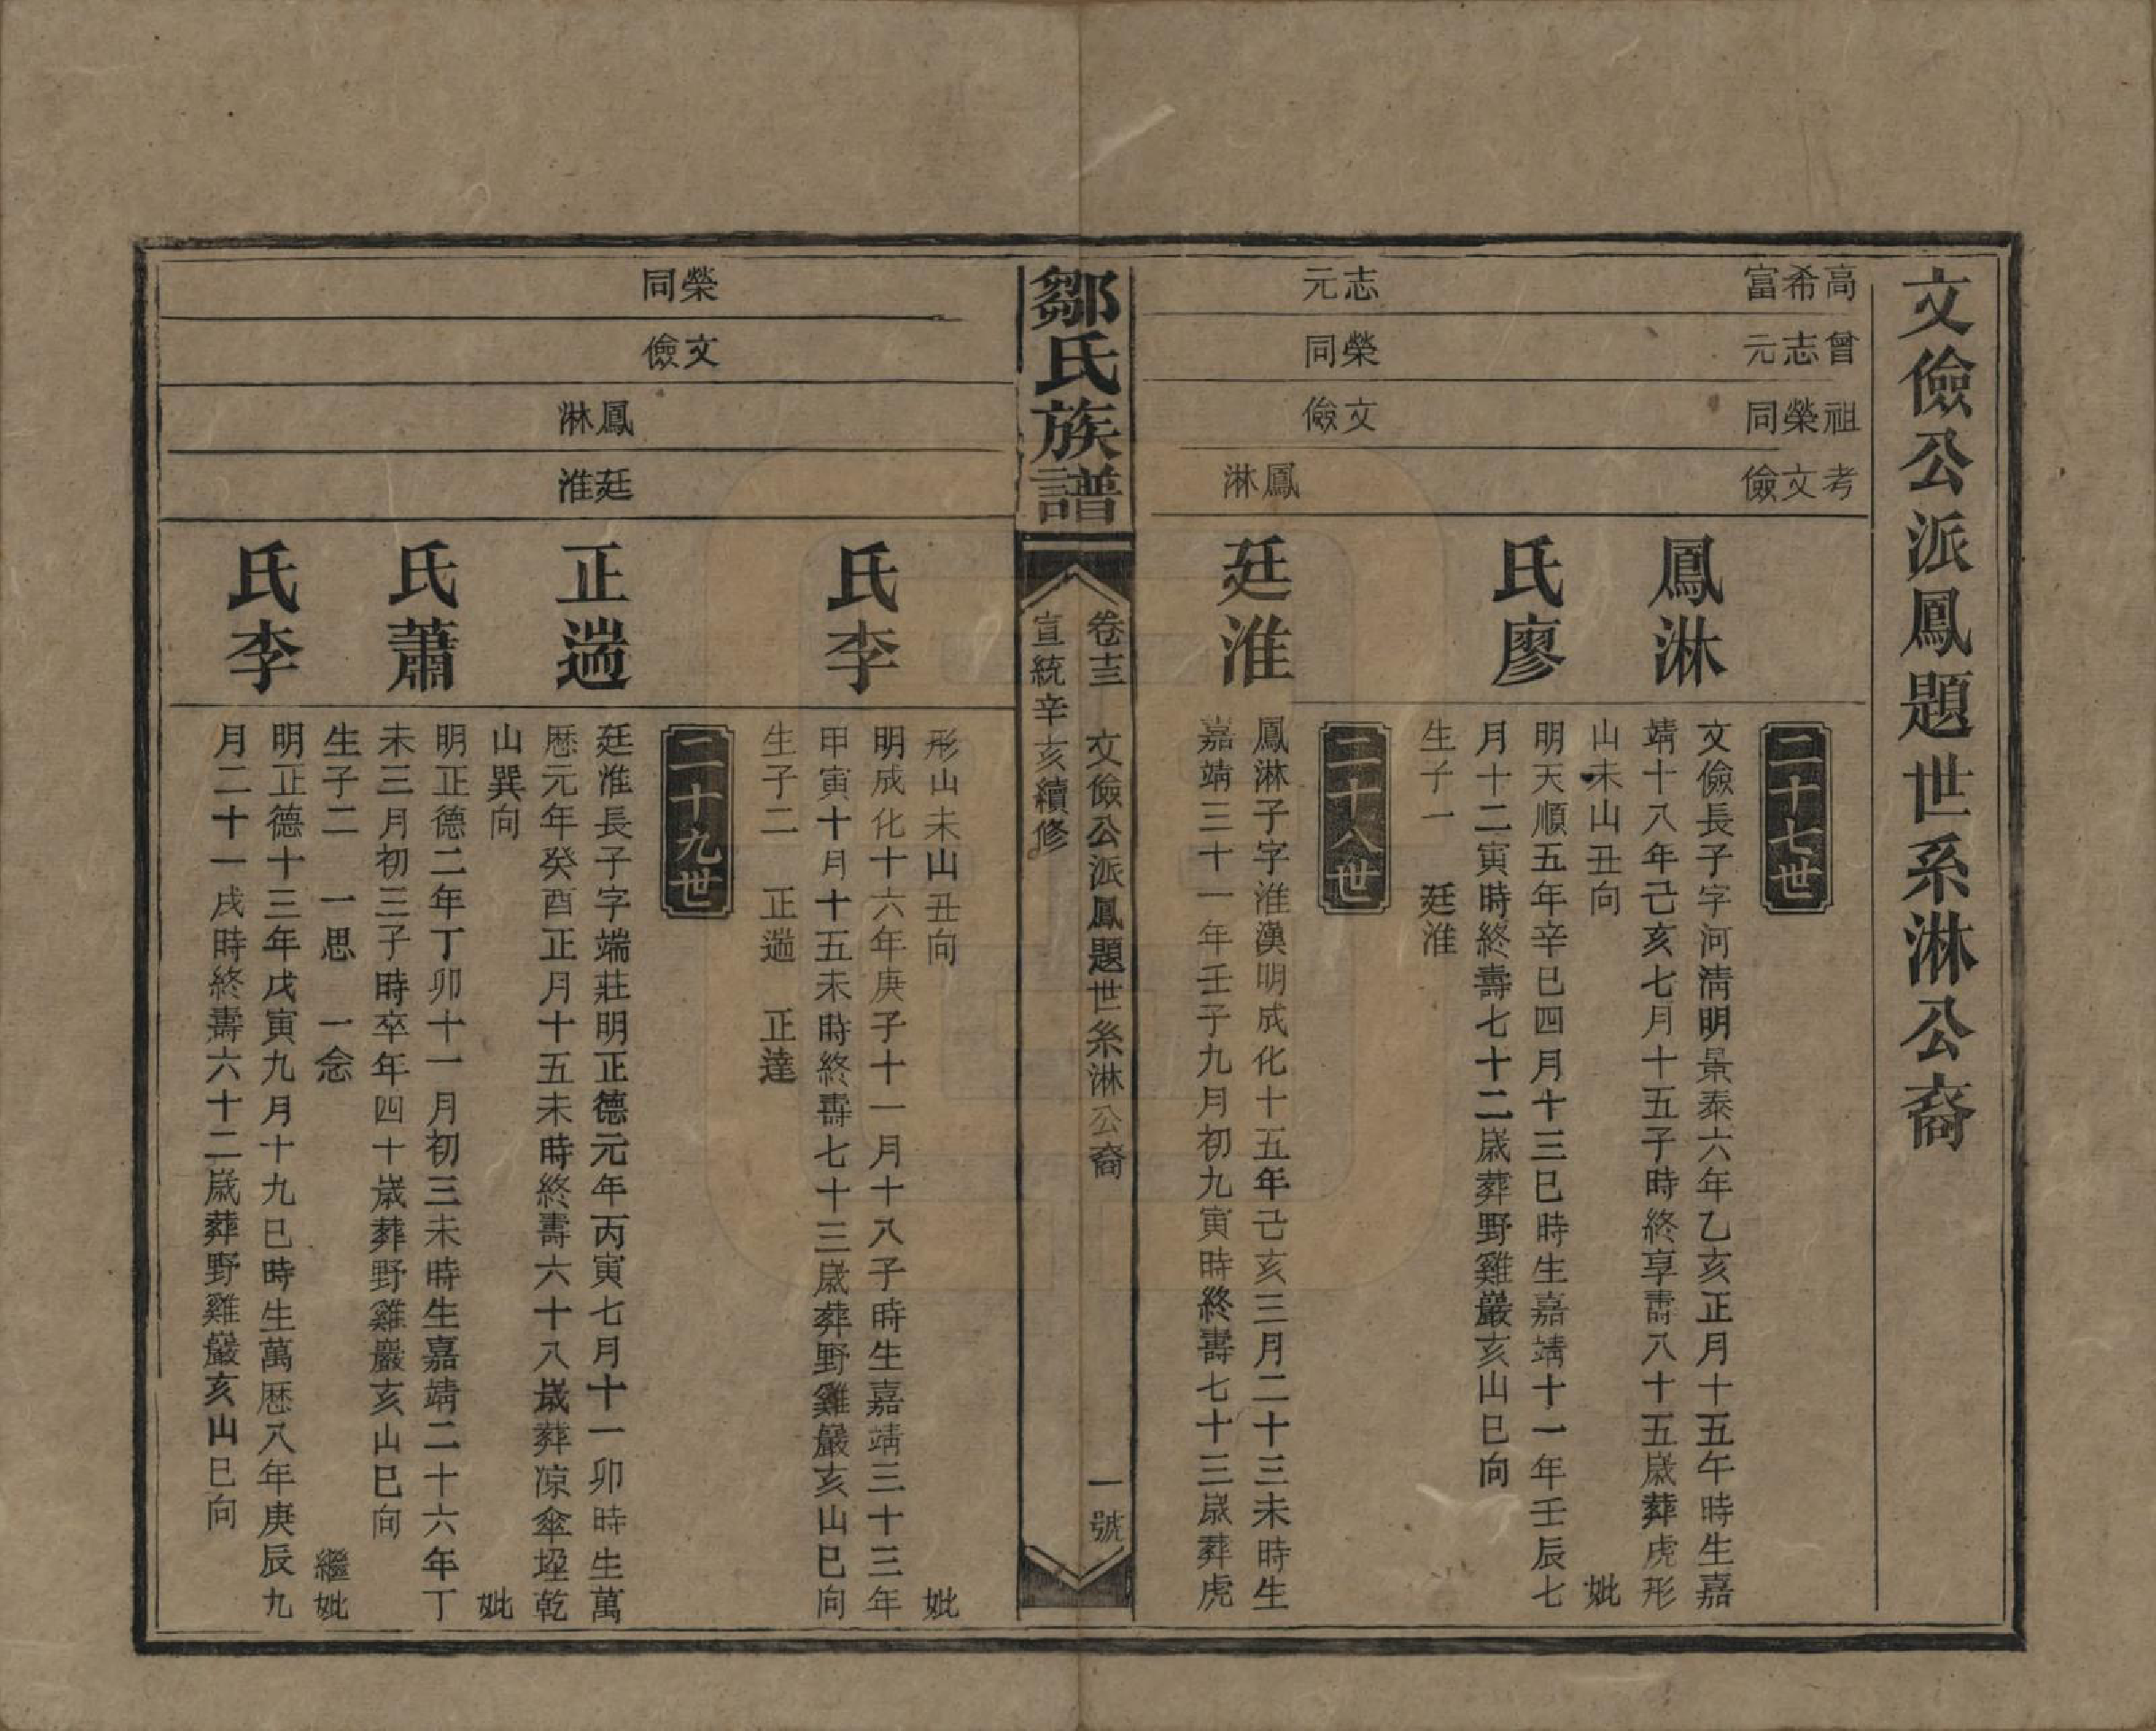 文儉公派鳳題世系淋公裔
高希富
曾志元
祖榮同
考文儉
二十七世
鳳淋
文儉長子字河淸明景泰六年乙亥正月十五午時生嘉
靖十八年己亥七月十五子時終享壽八十五歲葬虎形
山未山丑向 妣
氏廖
明天順五年辛巳四月十三巳時生嘉靖十一年壬辰七
月十二寅時終壽七十二歲葬野雞巖亥山巳向
生子一 廷淮
志元
榮同
文儉
鳳淋
二十八世
廷淮
鳳淋子字淮漢明成化十五年己亥三月二十三未時生
嘉靖三十一年壬子九月初九寅時終壽七十三歲葬虎
鄒氏族譜
卷十三 文儉公派鳳題世系淋公裔 一號
宣統辛亥續修
形山未山丑向 妣
氏李
明成化十六年庚子十一月十八子時生嘉靖三十三年
甲寅十月十五未時終壽七十三歲葬野雞巖亥山巳向
生子二 正遄 正達
榮同
文儉
鳳淋
廷淮
二十九世
正遄
廷淮長子字端莊明正德元年丙寅七月十一卯時生萬
歷元年癸酉正月十五未時終壽六十八歲葬凉傘埕乾
山巽向 妣
氏蕭
明正德二年丁卯十一月初三未時生嘉靖二十六年丁
未三月初三子時卒年四十歲葬野雞巖亥山巳向
生子二 一思 一念 繼妣
氏李
明正德十三年戊寅九月十九巳時生萬歷八年庚辰九
月二十一戌時終壽六十二歲葬野雞巖亥山巳向